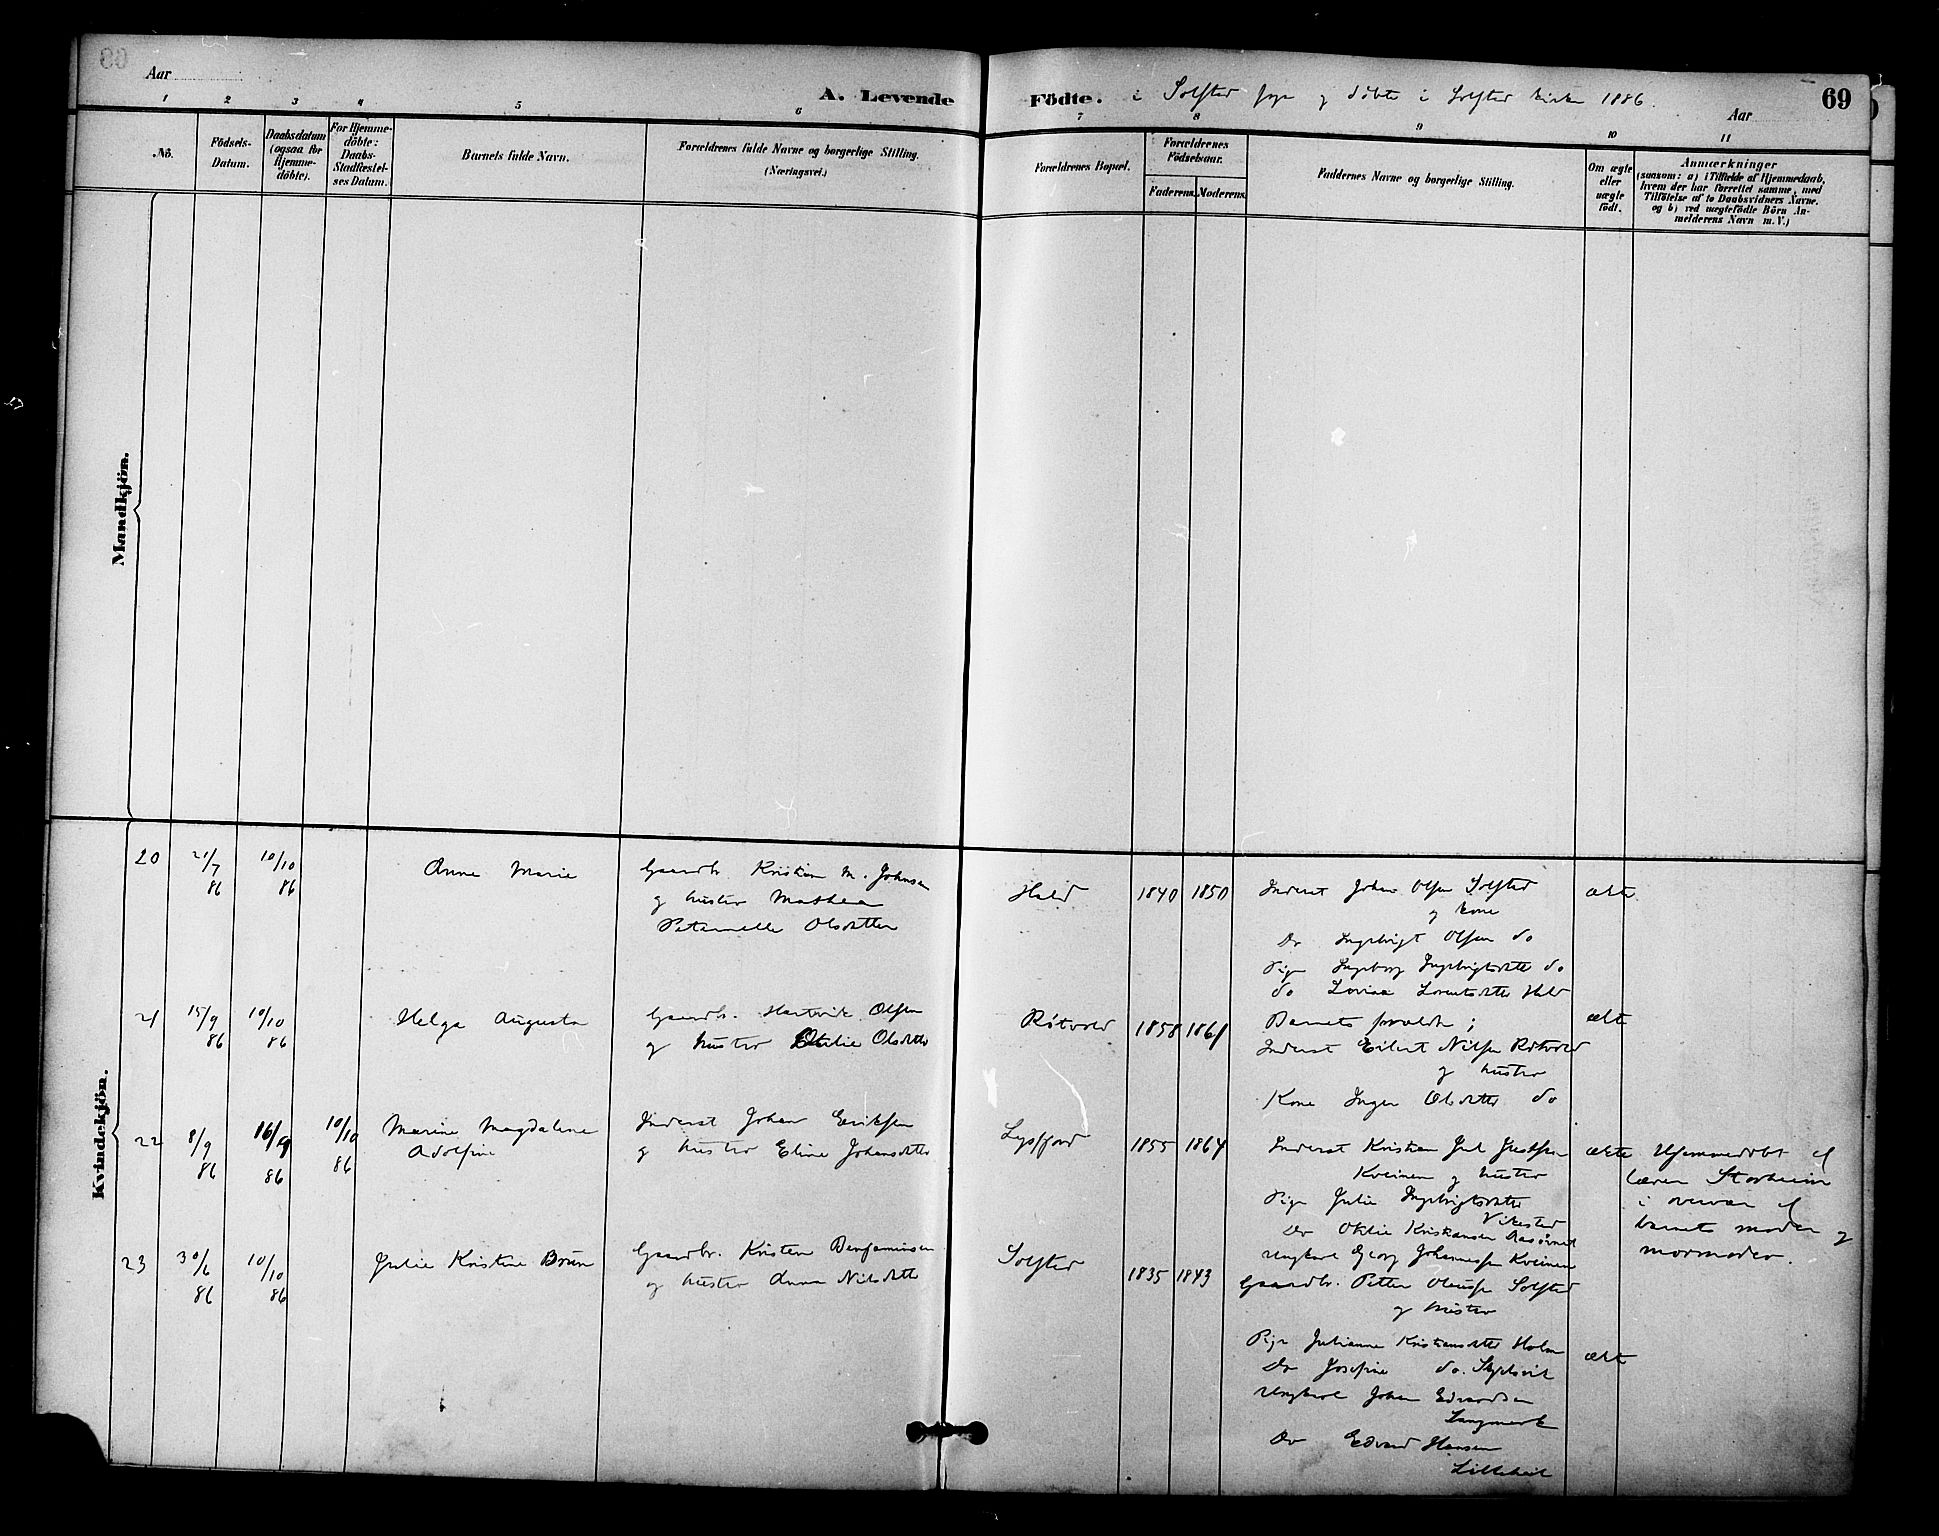 Aar
A. Levende
Födte. i Solstad sogn og döbte i Solstad kirke 1886.
Aar
69
1 2 3 4 5 6 7 8 9 10 11
No.
Födsels-
Datum.
Daabsdatum
(ogsaa for
Hjemme-
döbte).
For Hjemme-
döbte:
Daabs-
Stadfæstel-
ses Datum.
Barnets fulde Navn.
Forældrenes fulde Navne og borgerlige Stilling.
(Næringsvei.)
Forældrenes Bopæl.
Forældrenes
Födselsaar.
Faderens. Moderens.
Faddernes Navne og borgerlige Stilling.
Om ægte
eller
uægte
født.
Anmærkninger
(saasom: a) i Tilfælde af Hjemmedaab,
hvem der har forrettet samme, med
Tilföielse af to Daabsvidners Navne.
og b) ved uægtefödte Börn An-
melderens Navn m.V.)
Mandkjön.
Kvindekjön.
20
21/7
86
10/10
86
Anne Marie
Gaardbr. Kristian M. Johnsen
og hustru Mathea
Peternelle Olsdatter
Hald
1840 1850
Inderst Johan Olsen Solstad
og kone
Do Ingebrigt Olsen do
Pige Ingeborg Ingebrigtsdtr do
do Lovise Lorentsdtr Hald
ækte
21
15/9
86
10/10
86
Helga Augusta
Gaardbr. Hartvik Olsen
og hustru Otelie Olsdtr
Røtvold
1858 1861
Barnets forældre;
Inderst Eilert Nilsen Røtvold
og hustru
Kone Inger Olsdtr do
ækt
22
8/9
86
16/9
86
10/10
86
Marine Magdalene
Adolfine
Inderst Johan Eriksen
og hustru Eline Johansdtr
Lysfjord
1855 1864
Inderst Kristian Jul Justsen
Kveinen og hustru
Pige Julie Ingebrigtsdtr
Vikestad
Do Oktlie Kristiansen
Ungkarl Georg Johannessen Kveinen
ækte
Hjemmedøbt af
lærer Storheim
i overvær af
barnets moder og
mormoder.
23
30/6
86
10/10
86
Julie Kristine Brun
Gaardbr. Kristen Benjaminsen
og hustru Anna Nilsdtr
Solstad
1835 1843
Gaardbr. Petter Olausen Solstad
og hustru
Pige Julianne Kristiansdtr Holm
Do Josefine do.
Ungkarl Johan Edvardsen
Langmark
Do Edvard Hansen
ækt